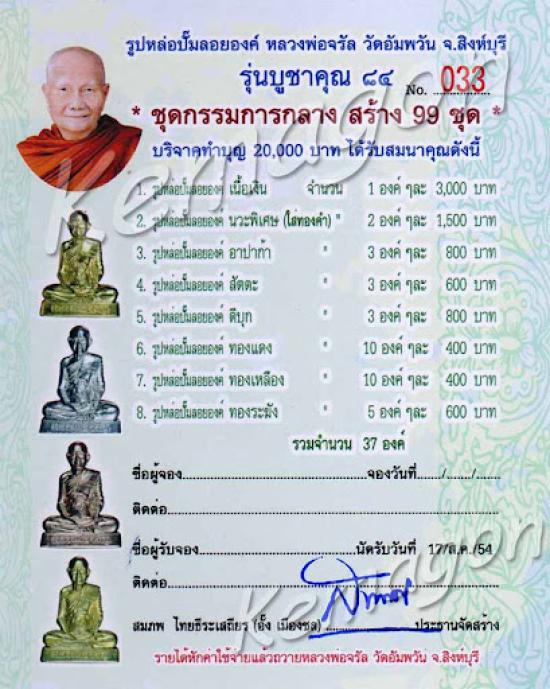 รูปหล่อปั๊มลอยองค์ หลวงพ่อจรัล วัดอัมพวัน จ.สิงห์บุรี
รุ่นบูชาคุณ ๘๔ No. 033
* ชุดกรรมการกลาง สร้าง 99 ชุด *
บริจาคทำบุญ 20,000 บาท ได้รับสมนาคุณดังนี้
1. รูปหล่อปั๊มลอยองค์ เนื้อเงิน จำนวน 1 องค์ ๆละ 3,000 บาท
2. รูปหล่อปั๊มลอยองค์ นวะพิเศษ (ใส่ทองคำ) " 2 องค์ ๆละ 1,500 บาท
3. รูปหล่อปั๊มลอยองค์ อาปาก้า " 3 องค์ ๆละ 800 บาท
4. รูปหล่อปั๊มลอยองค์ สัตตะ " 3 องค์ ๆละ 600 บาท
5. รูปหล่อปั๊มลอยองค์ ดีบุก " 3 องค์ ๆละ 800 บาท
6. รูปหล่อปั๊มลอยองค์ ทองแดง " 10 องค์ ๆละ 400 บาท
7. รูปหล่อปั๊มลอยองค์ ทองเหลือง " 10 องค์ ๆละ 400 บาท
8. รูปหล่อปั๊มลอยองค์ ทองระฆัง " 5 องค์ ๆละ 600 บาท
รวมจำนวน 37 องค์
ชื่อผู้จอง..........จองวันที่....../....../......
ติดต่อ..........
ชื่อผู้รับจอง..........นัดรับวันที่ 17/ส.ค./54
ติดต่อ..........
สมภพ ไทยธีระเสถียร (อั๋ง เมืองชล)..........ประธานจัดสร้าง
รายได้หักค่าใช้จ่ายแล้วถวายหลวงพ่อจรัล วัดอัมพวัน จ.สิงห์บุรี
Kemagon
Kemagon
Kemagon